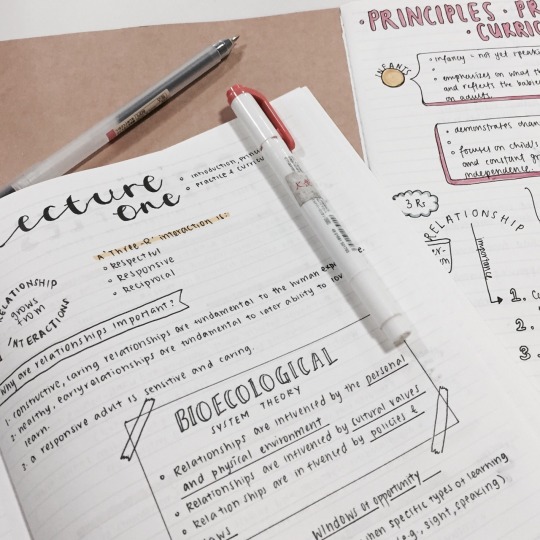 Lecture
one
• introduction,
• practice &
A "Three-R" interaction is:
• Respectful
• Responsive
• Reciprocal
RELATIONSHIP
grows
from
INTERACTIONS
Why are relationships important?
1. constructive, caring relationships are fundamental to the human
2. healthy, early relationships are fundamental to later ability to
learn.
3. a responsive adult is sensitive and caring.
BIOECOLOGICAL
SYSTEM THEORY
• Relationships are influenced by the personal
and physical environment
• Relationships are influenced by cultural values
• Relationships are influenced by policies &
laws
Windows of opportunity
when specific types of learning
(e.g., sight, speaking)
PRINCIPLES
INFANTS
• infancy - not yet
• emphasizes on what
and reflects the
on adults.
• demonstrates
• focuses on child's
and constant
independence.
3 Rs
RELATIONSHIP
importance
1.
2.
3.